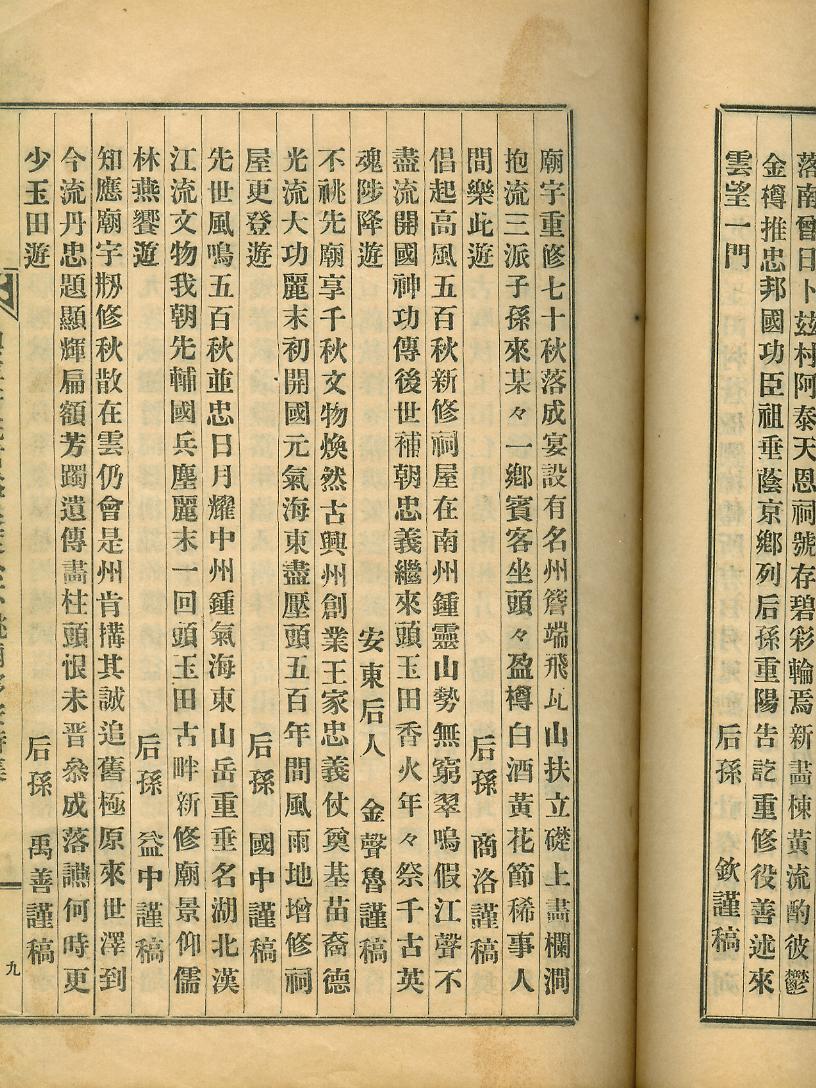 落南曾日卜玆村阿泰天恩祠號存碧彩輪焉新畵棟黃流酌彼鬱
金樽推忠邦國功臣祖垂蔭京鄉列后孫重陽告訖重修役善述來
雲望一門
后孫 欽謹稿
廟宇重修七十秋落成宴設有名州簷端飛瓦山扶立礎上畵欄澗
抱流三派子孫來某々一鄉賓客坐頭々盈樽白酒黃花節稀事人
間樂此遊 后孫 商洛謹稿
倡起高風五百秋新修祠屋在南州鍾靈山勢無窮翠嗚假江聲不
盡流開國神功傳後世補朝忠義繼來頭玉田香火年々祭千古英
魂陟降遊 安東后人 金聲魯謹稿
不祧先廟享千秋文物煥然古興州創業王家忠義仗奠基苗裔德
光流大功麗末初開國元氣海東盡壓頭五百年間風雨地增修祠
屋更登遊 后孫 國中謹稿
先世風鳴五百秋並忠日月耀中州鍾氣海東山岳重垂名湖北漢
江流文物我朝先輔國兵塵麗末一回頭玉田古畔新修廟景仰儒
林燕饗遊 后孫 益中謹稿
知應廟宇刱修秋散在雲仍會是州肯搆其誠追舊極原來世澤到
今流丹忠題顯輝扁額芳躅遺傳畵柱頭恨未晋叅成落讌何時更
少玉田遊 后孫 禹善謹稿
九